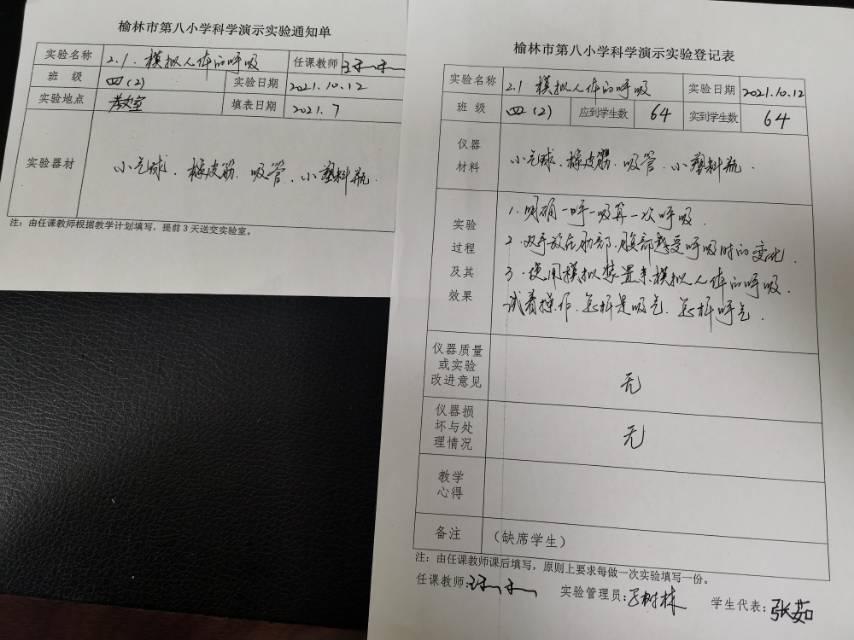 榆林市第八小学科学演示实验通知单
实验名称 2.1.模拟人体的呼吸 任课教师
班 级 四(2) 实验日期 2021.10.12
实验地点 教室 填表日期 2021.7
实验器材 小气球、橡皮筋、吸管、小塑料瓶.
注：由任课教师根据教学计划填写，提前3天送交实验室。
榆林市第八小学科学演示实验登记表
实验名称 2.1 模拟人体的呼吸 实验日期 2021.10.12
班 级 四(2) 应到学生数 64 实到学生数 64
仪器
材料
小气球、橡皮筋、吸管、小塑料瓶.
实验
过程
及其
效果
1.明确一呼一吸算一次呼吸.
2.双手放在肋部、腹部感受呼吸时的变化.
3.使用模拟装置来模拟人体的呼吸.
试着操作.怎样是吸气.怎样呼气.
仪器质量
或实验
改进意见
无
仪器损
坏与处
理情况
无
教学
心得
备注 （缺席学生）
注：由任课教师课后填写，原则上要求每做一次实验填写一份。
任课教师: 实验管理员: 树林 学生代表: 张茹